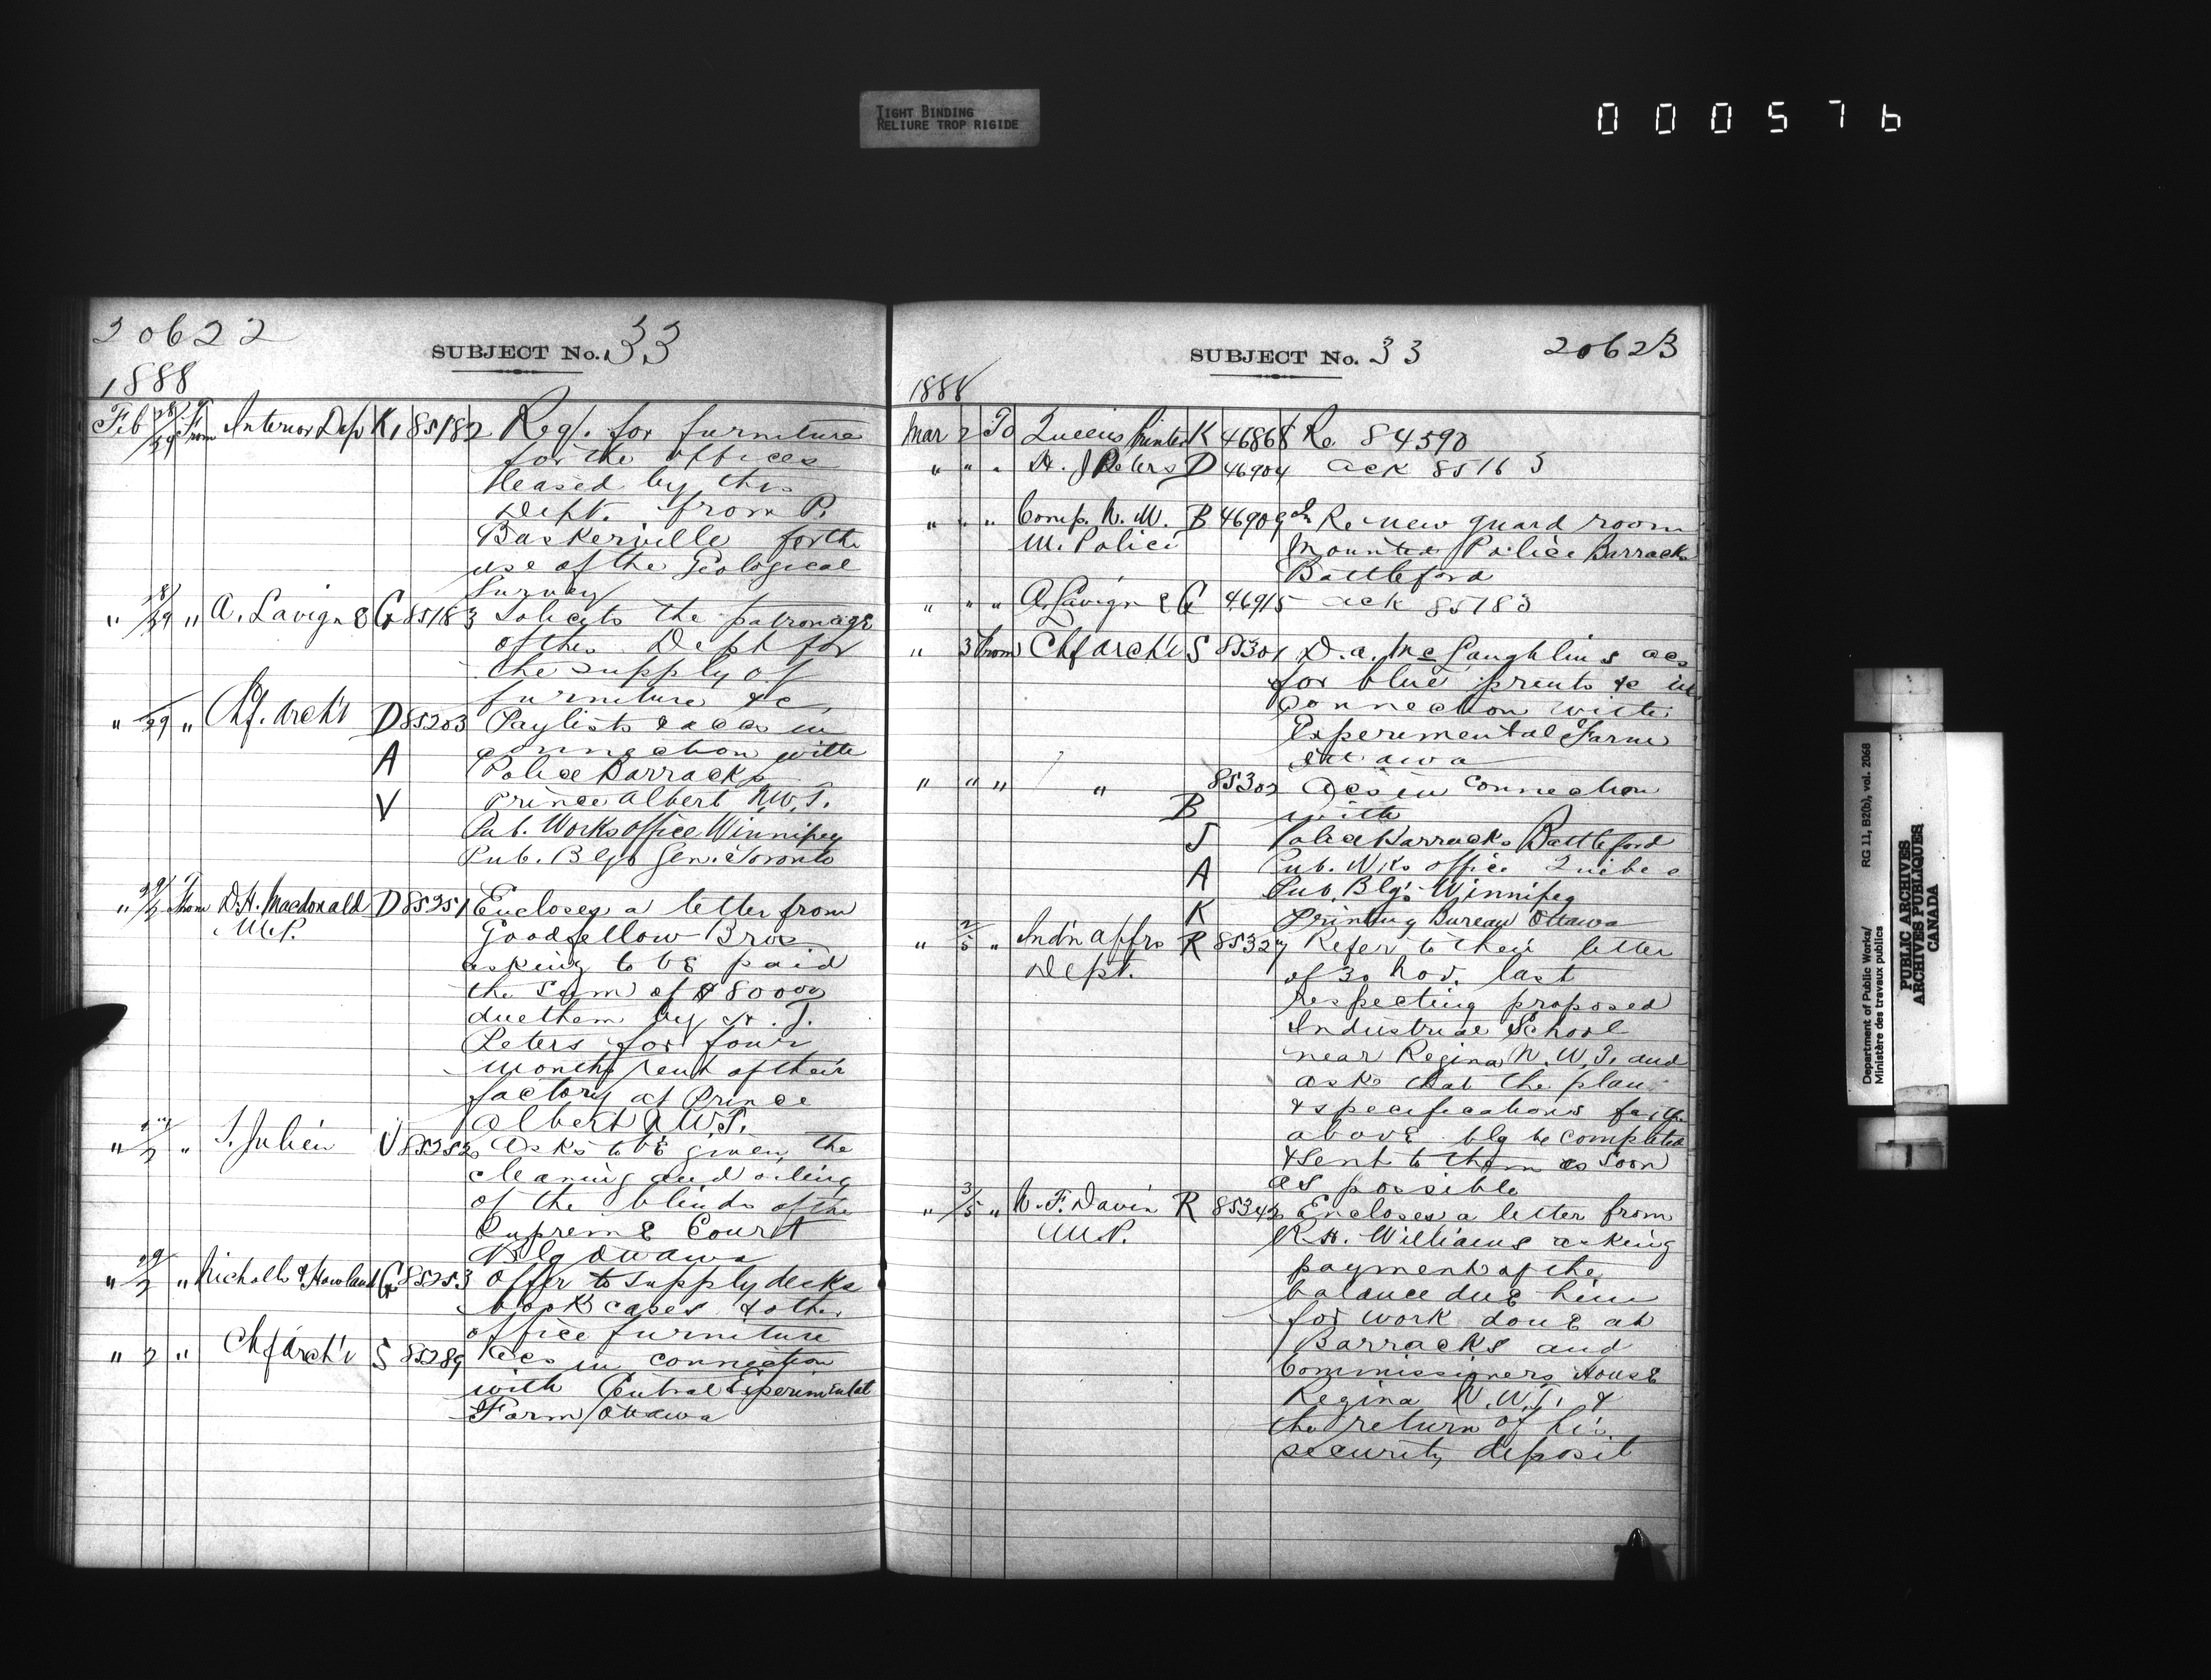 TIGHT BINDING
RELIURE TROP RIGIDE
000576
20622
SUBJECT No. 33
1888
Feb 28/29 From Interior Dep K, 85182 Req. for furniture
for the offices
leased by this
Dept. from P.
Baskerville for the
use of the Geological
Survey
" 28/29 " A. Lavigne G 85183 Solicits the patronage
of this Dept for
the supply of
furniture &c,
" 29 " Chf. Arch't D 85203 Paylists & accs in
A connection with
Police Barracks
V Prince Albert N.W.T.
Pub. Works Office Winnipeg
Pub. Blgs Gen. Toronto
" 29/2 From D.H. Macdonald D 85251 Encloses a letter from
M.P. Goodfellow Bros
asking to be paid
the sum of $80000
due them by H. J.
Peters for four
months rent of their
factory at Prince
Albert N.W.T.
" " J. Julien V 85252 Asks to be given the
cleaning and oiling
of the blinds of the
Supreme Court
Blg Ottawa
" 29/2 " Nicholls & Howland G 85253 Offer to supply desks
book cases & other
office furniture
" 2 " Chf Arch't S 85289 Accs in connection
with Central Experimental
Farm Ottawa
SUBJECT No. 33
20623
1888
Mar 2 To Queens Printer K 46868 Re 84590
" " " H. J Peters D 46904 ack 85163
" " " Comp. N. W. B 46909 Re new guard room
M. Police Mounted Police Barracks
Battleford
" " " A. Lavigne G 46915 ack 85183
" 3 From Chf Arch't S 85301 D. A. McLaughlins acs
for blue prints &c in
connection with
Experimental Farm
Ottawa
" " " " 85302 Acs in connection
B with
J Police Barracks Battleford
A Pub. Wks office Quebec
Pub. Blgs Winnipeg
K Printing Bureau Ottawa
" 2/5 " Ind'n Affrs R 85327 Refer to their letter
Dept. of 30 Nov. last
respecting proposed
Industrial School
near Regina N.W.T. and
asks that the plan
& specifications for the
above blg be completed
& sent to them as soon
as possible
" 3/5 " N. F. Davin R 85342 Encloses a letter from
M.P. R. H. Williams asking
payment of the
balance due him
for work done at
Barracks and
Commissioners House
Regina N.W.T. &
the return of his
security deposit
Department of Public Works/ RG 11, B2(b), vol. 2068
Ministère des travaux publics
PUBLIC ARCHIVES
ARCHIVES PUBLIQUES
CANADA